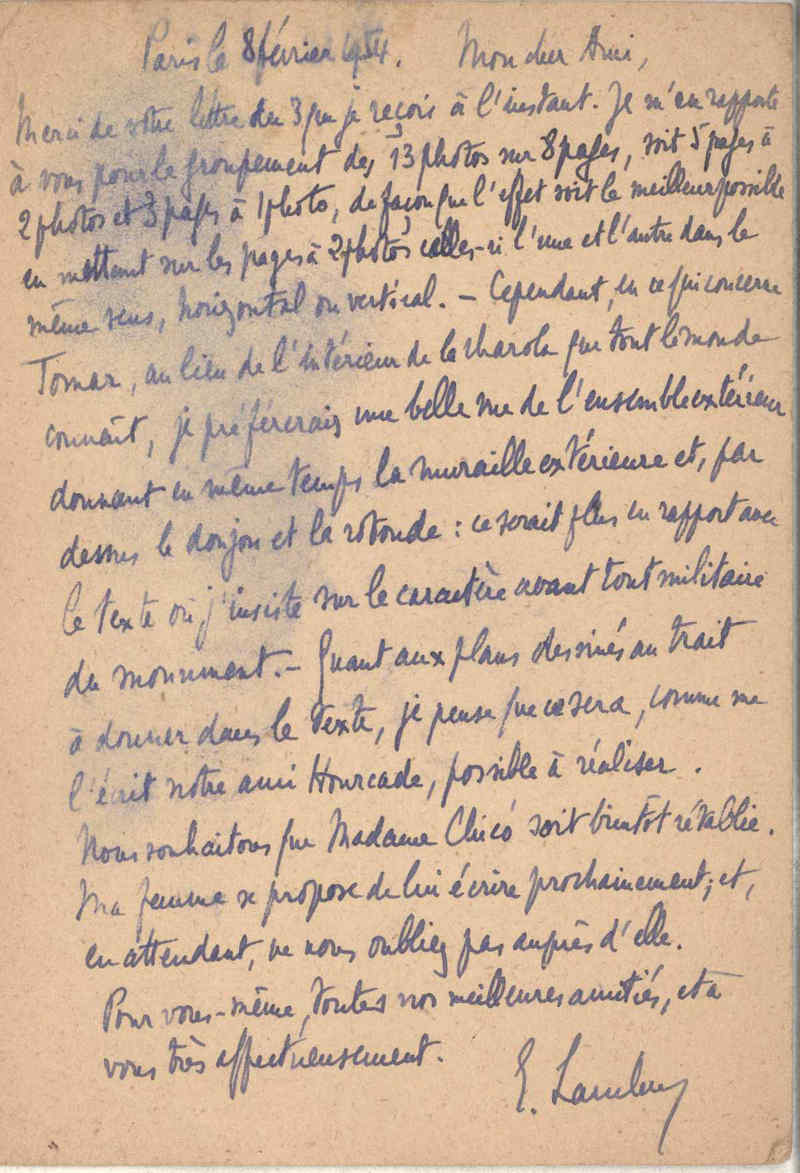 Paris le 8 février 1954. Mon cher Ami,
Merci de votre lettre du 3 que je reçois à l'instant. Je m'en rapporte
à vous pour le groupement des 13 photos sur 8 pages, soit 5 pages à
2 photos et 3 pages à 1 photo, de façon que l'effet soit le meilleur possible
en mettant sur les pages à 2 photos celles-ci l'une et l'autre dans le
même sens, horizontal ou vertical. – Cependant, en ce qui concerne
Tomar, au lieu de l'intérieur de la charola que tout le monde
connaît, je préfèrerais une belle vue de l'ensemble extérieur
donnant en même temps la muraille extérieure et, par
dessus le donjon et la rotonde : ce serait plus en rapport avec
le texte où j'insiste sur le caractère avant tout militaire
du monument. – Quant aux plans dessinés au trait
à donner dans le texte, je pense que ce sera, comme me
l'écrit notre ami Hourcade, possible à réaliser.
Nous souhaitons que Madame Chicó soit bientôt rétablie.
Ma femme se propose de lui écrire prochainement ; et,
en attendant, ne nous oubliez pas auprès d'elle.
Pour vous-même, toutes nos meilleures amitiés, et à
vous très affectueusement.
E. Lambert